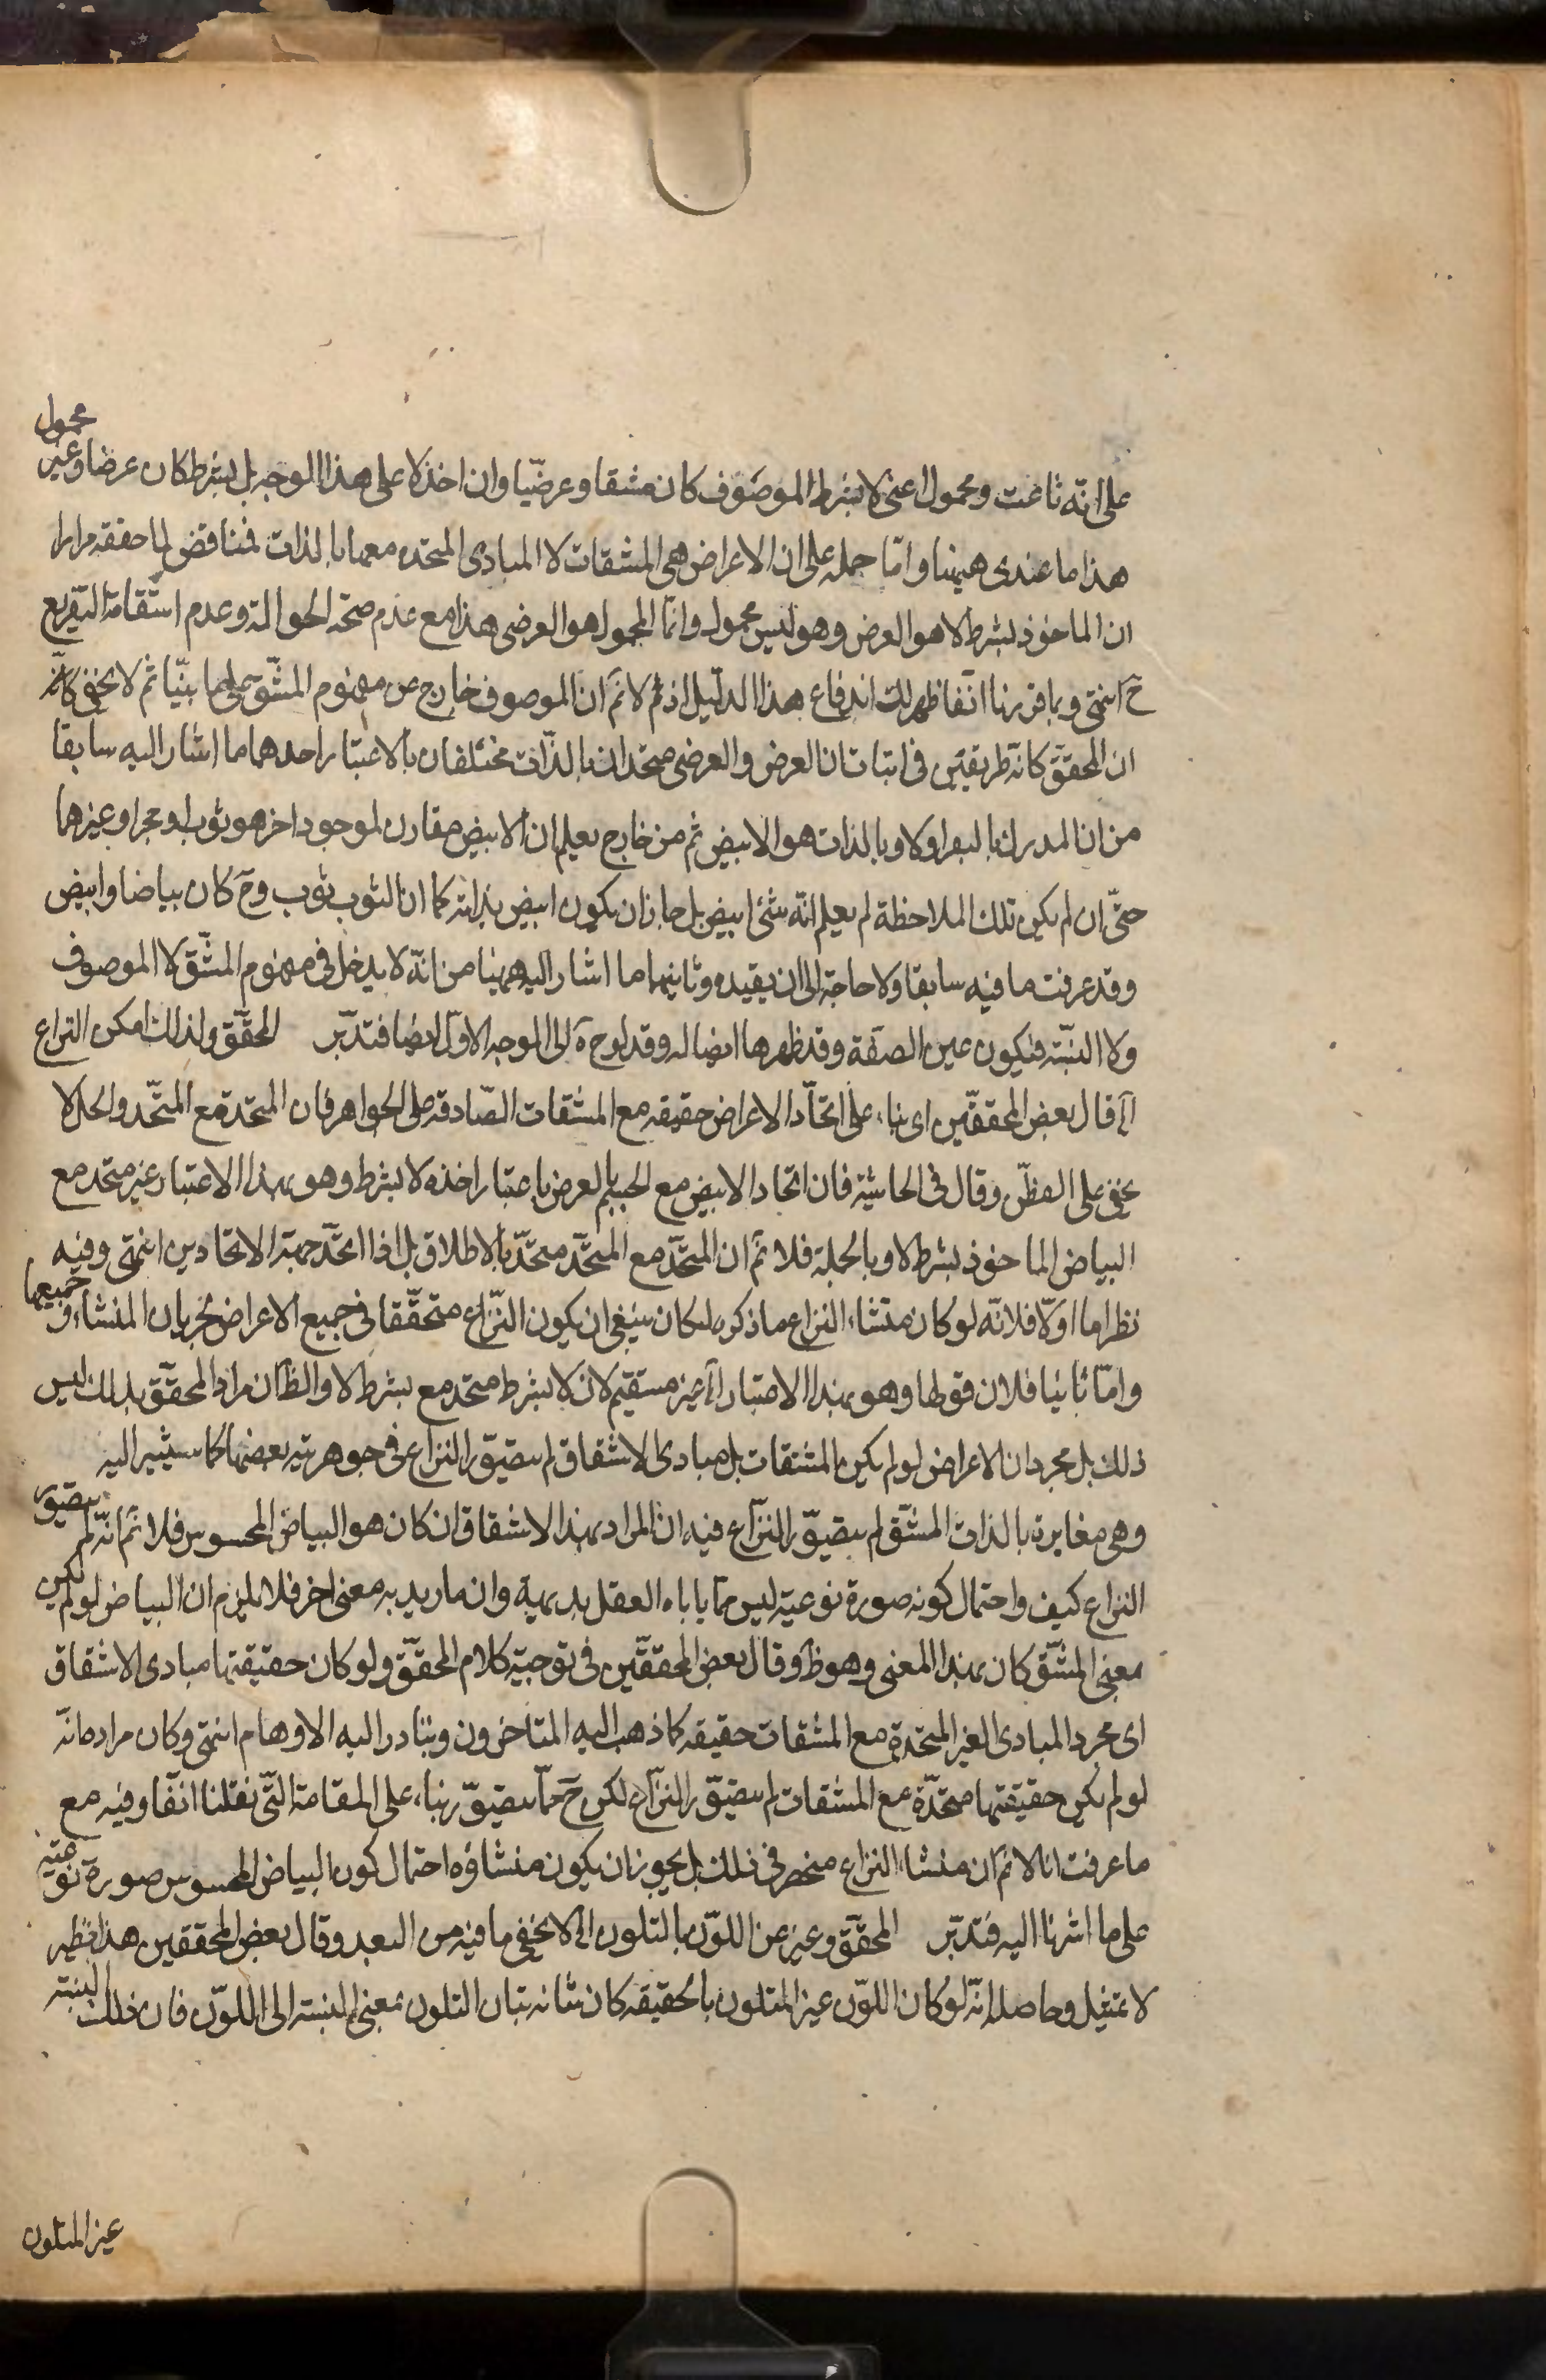 على انه ناعت ومحمول اعنى لا بشرط الموصوف كان مشتقا وعرضيّا وان اخذ لا على هذا الوجه بل بشرط كان عرضا وغير محمول
هذا ما عندى ههنا وامّا حمله على ان الاعراض هى المشتقات لا المبادى المتحده معها بالذات فمناقض لما حققه مرارا
ان الماخوذ بشرط لا هو العرض وهو ليس بمحمول وانّما المحمول هو العرضى هذا مع عدم صحّة الحوالة وعدم استقامة التفريع
ح انتهى وبما قررنا آنفا ظهر لك اندفاع هذا الدليل اذ ثم لا نم ان الموصوف خارج عن مفهوم المشتق على ما بيّنا ثم لا يخفى كانّه
ان المحقق كانه طريقين فى اثبات ان العرض والعرضى متحدان بالذات مختلفان بالاعتبار احدهما ما اشار اليه سابقا
من ان المدرك بالبصر اولا وبالذات هو الابيض ثم من خارج يعلم ان الابيض مقارن لموجود اخر هو ثوب او حجر او غيرهما
حتّى ان لم يكن تلك الملاحظة لم يعلم انّه شئ ابيض بل جاز ان يكون ابيض بذاته كما ان الثوب ثوب وح كان بياضا وابيض
وقد عرفت ما فيه سابقا ولا حاجة الى ان يقيده وثانيهما ما اشار اليه ههنا من انّه لا يدخل فى مفهوم المشتق لا الموصوف
ولا النسبة فيكون عين الصفة وقد ظهر ها ايضا له وقد لوح ه الى الوجه الاول ايضا فتدبّر المحقق ولذلك امكن النزاع
اه قال بعض المحققين اى بناء على اتحاد الاعراض حقيقه مع المشتقات الصّادقه على الجواهر فان المتحد مع المتحد واحد لا
يخفى على الفطن وقال فى الحاشية فان اتحاد الابيض مع الجسم بالعرض باعتبار اخذه لا بشرط وهو بهذا الاعتبار غير متحد مع
البياض الماخوذ بشرط لا وبالجملة فلا نم ان المتحد مع المتحد متحد بالاطلاق بل اذا اتحد جهة الاتحادين انتهى وفيه
نظر اما اولا فلانه لو كان منشاء النزاع ما ذكره لكان ينبغى ان يكون النزاع متحققا فى جميع الاعراض لجريان المنشاء فى جميعها
وامّا ثانيا فلان قولها وهو بهذا الاعتبار اه غير مستقيم لان لا بشرط متحد مع بشرط لا والظ ان مراد المحقق بذلك ليس
ذلك بل مجرد ان الاعراض لو لم يكن المشتقات بل مبادى الاشتقاق لم يتصوّر النزاع فى جوهرية بعضها كما سيشير اليه
وهى مغايرة بالذات المشتق لم يتصوّر النزاع فيه ان المراد بهذا الاشتقاق ان كان هو البياض المحسوس فلا نم انّه لم يتصور
النزاع كيف واحتمال كونه صورة نوعيّة ليس مما ياباه العقل بديهية وان ما ريد به معنى اخر فلا يلزم ان البياض لو لم يكن
معنى المشتق كان بهذا المعنى وهو ظ وقال بعض المحققين فى توجيه كلام المحقق ولو كان حقيقتها مبادى الاشتقاق
اى مجرد المبادى الغير المتحدة مع المشتقات حقيقه كما ذهب اليه المتاخرون ويتبادر اليه الاوهام انتهى وكان مراده انّه
لو لم يكن حقيقتها متحدة مع المشتقات لم يتصوّر النزاع لكن ح مما يتصوّر بناء على المقدمة التى نقلنا انفا وفيه مع
ما عرفت انا لا نم ان منشاء النزاع منحصر فى ذلك بل يجوز ان يكون منشاؤه احتمال كون البياض المحسوس صورة نوعيّة
على ما اشرنا اليه فتدبّر المحقق وعبر عن اللون بالتلون اه لا يخفى ما فيه من البعد وقال بعض المحققين هذا نظير
لا تمثيل وحاصله انّه لو كان اللون غير المتلون بالحقيقه كان شانه شان التلون بمعنى النسبة الى اللون فان ذلك النسبة
غير المتلون